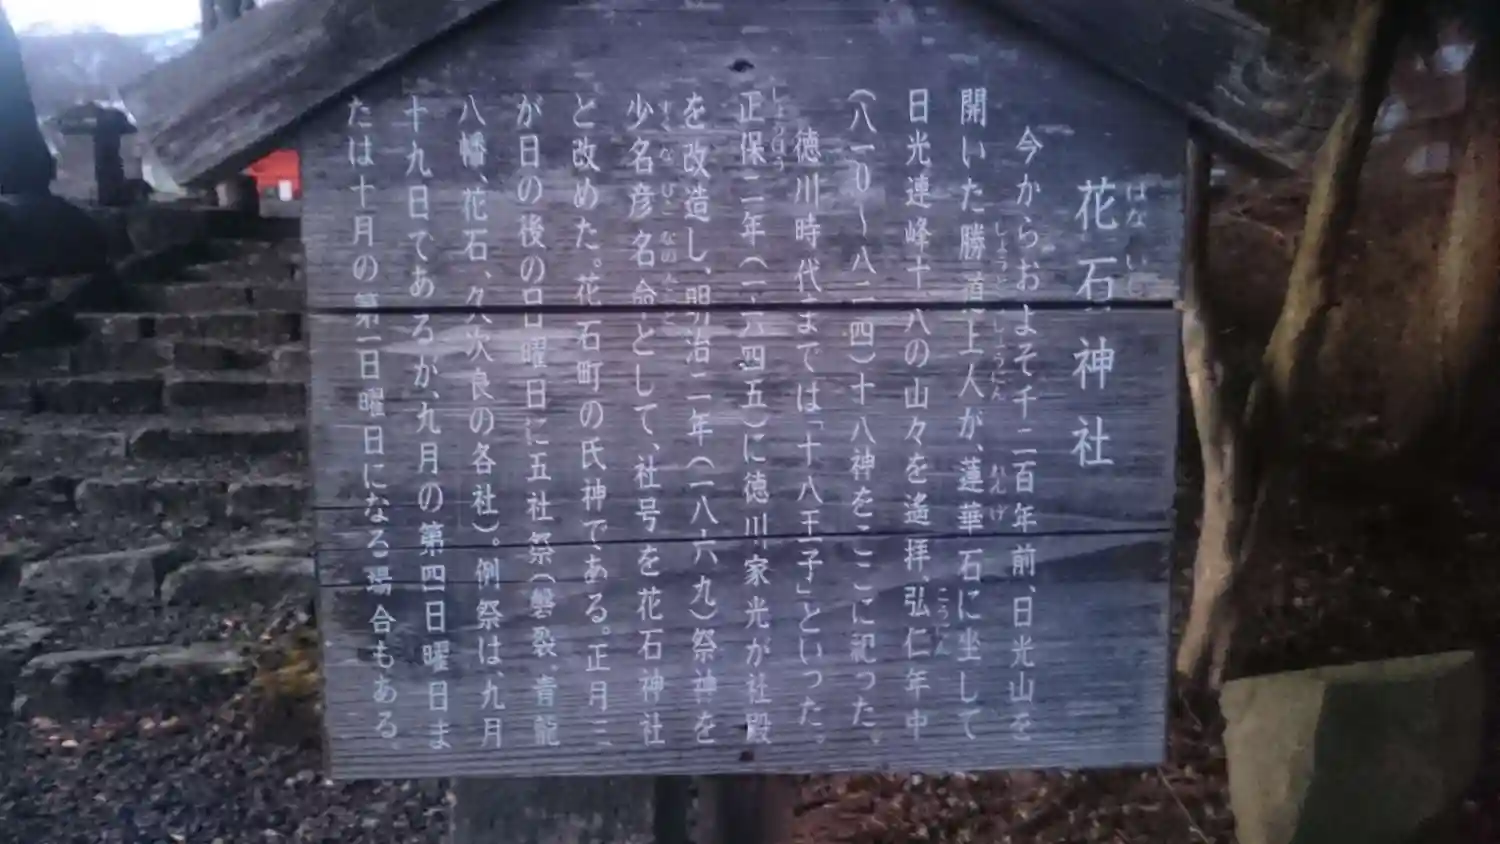 花石神社
今からおよそ千二百年前、日光山を
開いた勝道上人が、蓮華石に坐して
日光連峰十八の山々を遙拝、弘仁年中
（八一0～八二四）十八神をここに祀った。
徳川時代までは「十八王子」といった。
正保二年（一六四五）に徳川家光が社殿
を改造し、明治二年（一八六九）祭神を
少名彦名命として、社号を花石神社
と改めた。花石町の氏神である。正月三
が日の後の日曜日に五社祭（磐裂、青龍
八幡、花石、久次良の各社）。例祭は、九月
十九日であるが、九月の第四日曜日ま
たは十月の第一日曜日になる場合もある。